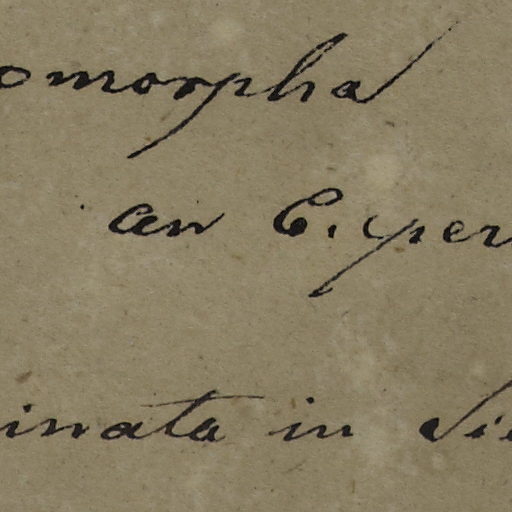 omorpha
an C. per
inata in Sie